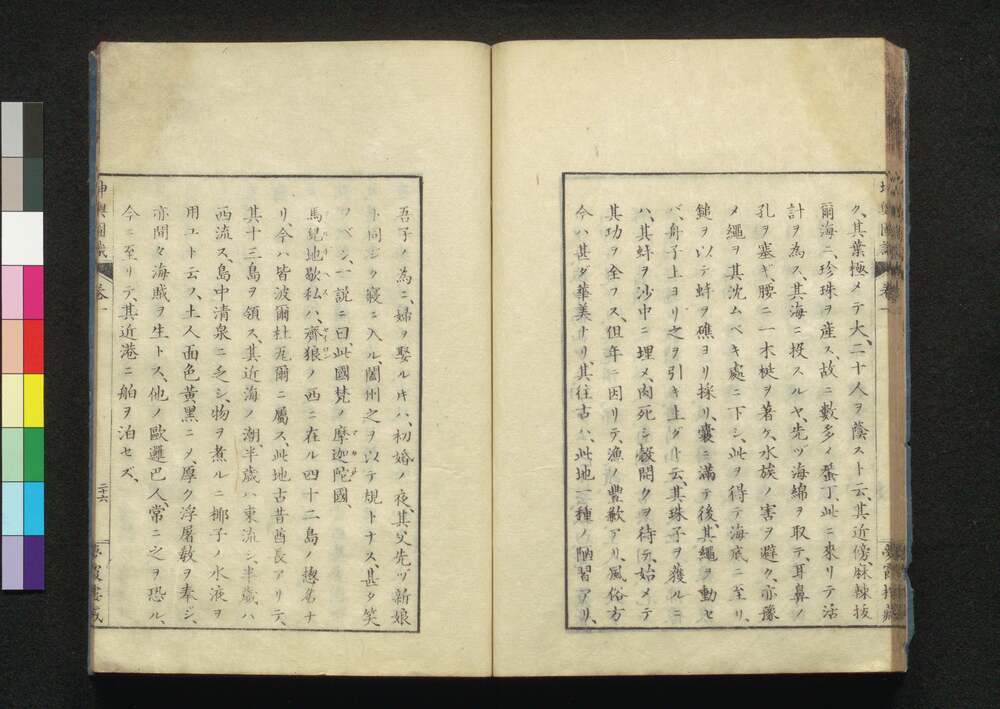 ク、其葉極メテ大、二十人ヲ蔭スト云、其近傍、麻辣抜
爾海ニ、珍珠ヲ産ス、故ニ數多ノ蜑丁、此ニ來リテ活
計ヲ為ス、其海ニ投スルヤ、先ヅ海綿ヲ取テ、耳鼻ノ
孔ヲ塞ギ、腰ニ一木梃ヲ著ケ、水族ノ害ヲ避ク、亦豫
メ繩ヲ其沈ムベキ處ニ下シ、此ヲ得テ海底ニ至リ、
鎚ヲ以テ蚌ヲ礁ヨリ採リ、囊ニ滿テ後、其繩ヲ動セ
バ、舟子上ヨリ之ヲ引キ上グト云、其珠子ヲ獲ルニ
ハ、其蚌ヲ沙中ニ埋メ、肉死シ殼開クヲ待テ、始メテ
其功ヲ全フス、但年ニ因リテ、漁ノ豊歉アリ、風俗方
今ハ甚ダ華美ナリ、其往古ハ、此地一種ノ陋習アリ、
吾子ノ為ニ、婦ヲ娶ルキハ、初婚ノ夜、其父先ヅ新娘
ト同シク寢ニ入ル、闔州之ヲ以テ規トナス、甚タ笑
フベシ、一説ニ曰、此國梵ノ摩迦陀國、
馬兒地歇私ハ、齊狼ノ西ニ在ル四十二島ノ總名ナ
リ、今ハ皆波爾杜瓦爾ニ屬ス、此地古昔酋長アリテ、
其十三島ヲ領ス、其近海ノ潮、半歳ハ東流シ、半歳ハ
西流ス、島中清泉ニ乏シ、物ヲ煮ルニ椰子ノ水液ヲ
用ユト云フ、土人面色黄黒ニメ、厚ク浮屠教ヲ奉シ、
亦間々海賊ヲ生トス、他ノ歐邏巴人、常ニ之ヲ恐ル、
今ニ至リテ、其近港ニ舶ヲ泊セズ、
坤輿圖識
卷一
二十六